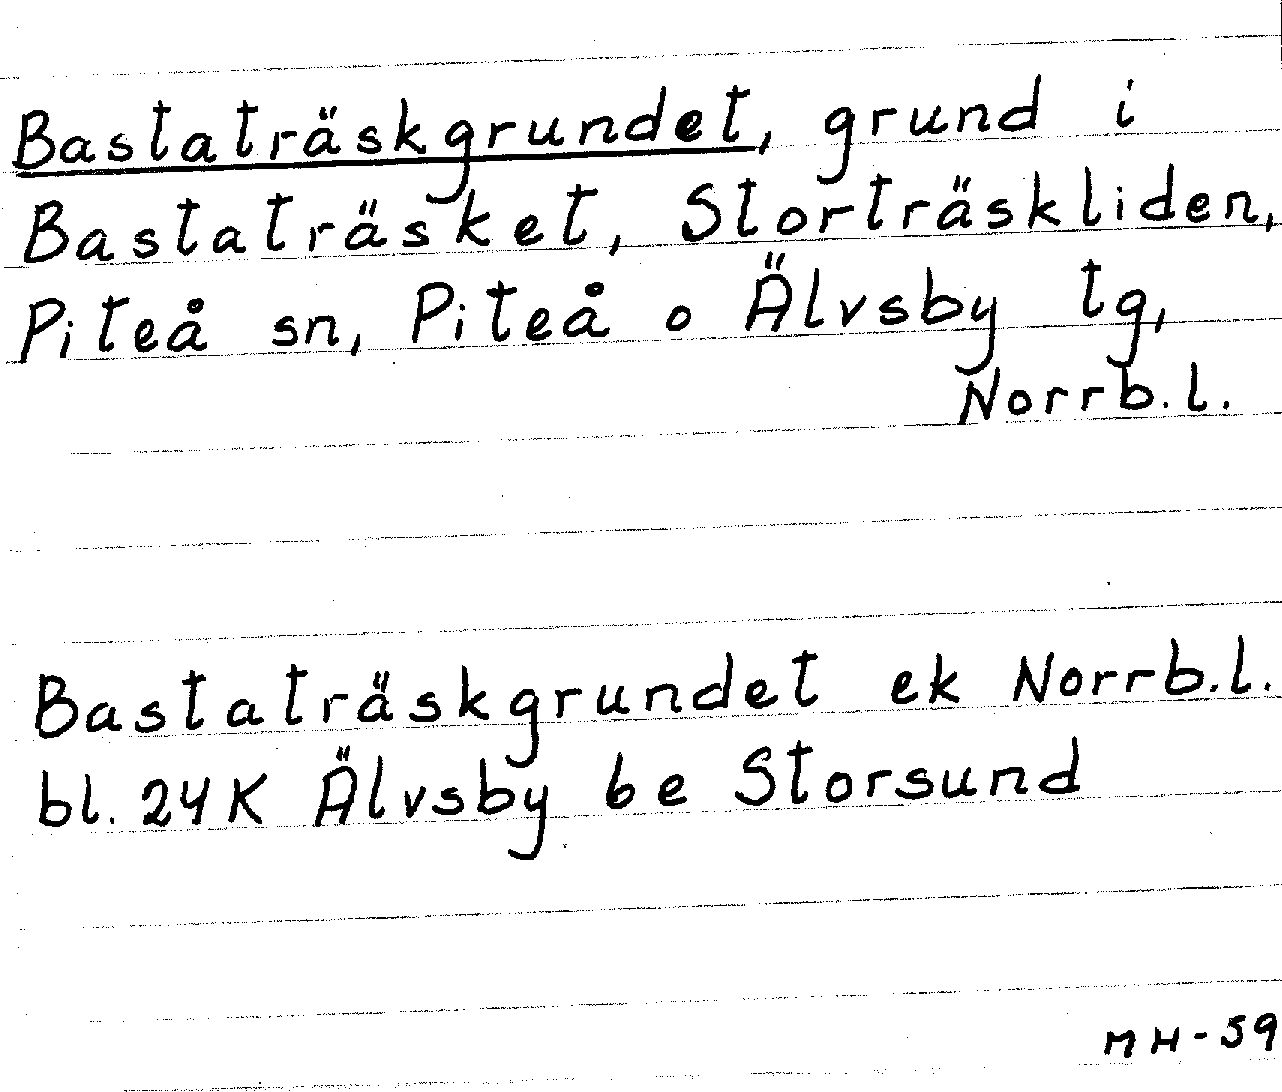 Bastaträskgrundet, grund i
Bastaträsket, Storträskliden,
Piteå sn, Piteå o Älvsby tg,
Norrb.l.
Bastaträskgrundet ek Norrb.l.
bl. 24K Älvsby 6e Storsund
MH-59